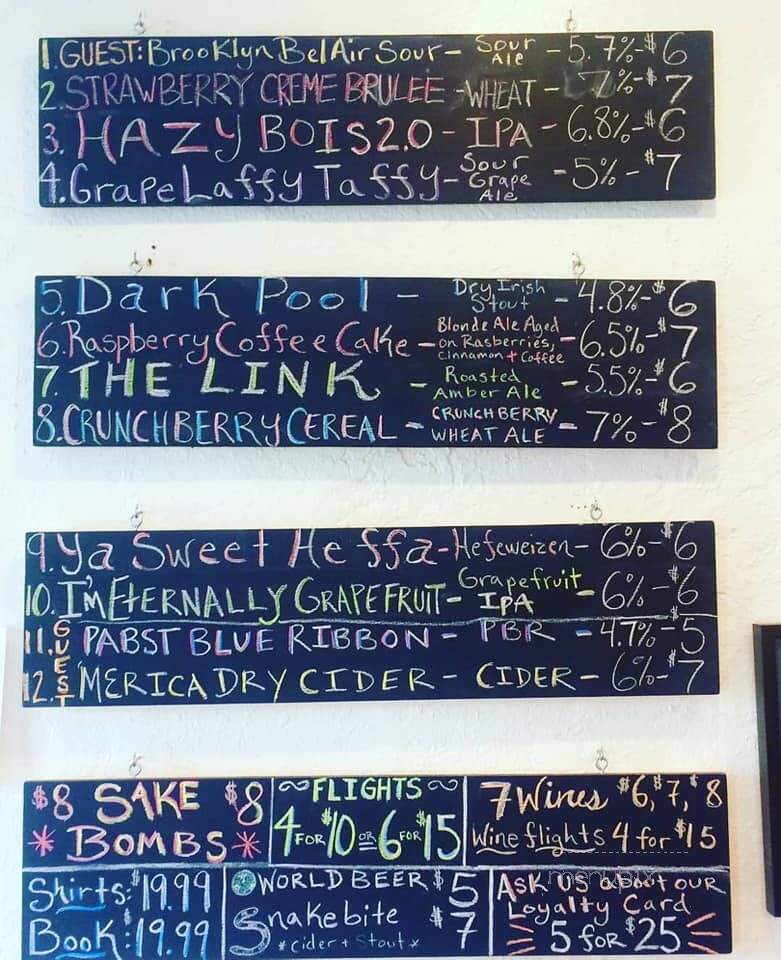 1. GUEST: Brooklyn Bel Air Sour - Sour Ale - 5.7% - $6
2. STRAWBERRY CREME BRULEE - WHEAT - 7% - $7
3. HAZY BOIS 2.0 - IPA - 6.8% - $6
4. Grape Laffy Taffy - Sour Grape Ale - 5% - $7
5. Dark Pool - Dry Irish Stout - 4.8% - $6
6. Raspberry Coffee Cake - Blonde Ale Aged on Rasberries, Cinnamon + Coffee - 6.5% - $7
7. THE LINK - Roasted Amber Ale - 5.5% - $6
8. CRUNCHBERRY CEREAL - CRUNCH BERRY WHEAT ALE - 7% - $8
9. Ya Sweet Heffa - Hefeweizen - 6% - $6
10. I'M ETERNALLY GRAPEFRUIT - Grapefruit IPA - 6% - $6
GUEST
11. PABST BLUE RIBBON - PBR - 4.7% - $5
12. 'MERICA DRY CIDER - CIDER - 6% - $7
$8 SAKE $8
* BOMBS *
~ FLIGHTS ~
4 FOR $10 OR 6 FOR $15
7 Wines $6, $7, $8
Wine flights 4 for $15
Shirts: $19.99
Book: $19.99
WORLD BEER $5
Snakebite $7
* cider + Stout *
menupix
ASK US about our
Loyalty Card
5 for $25